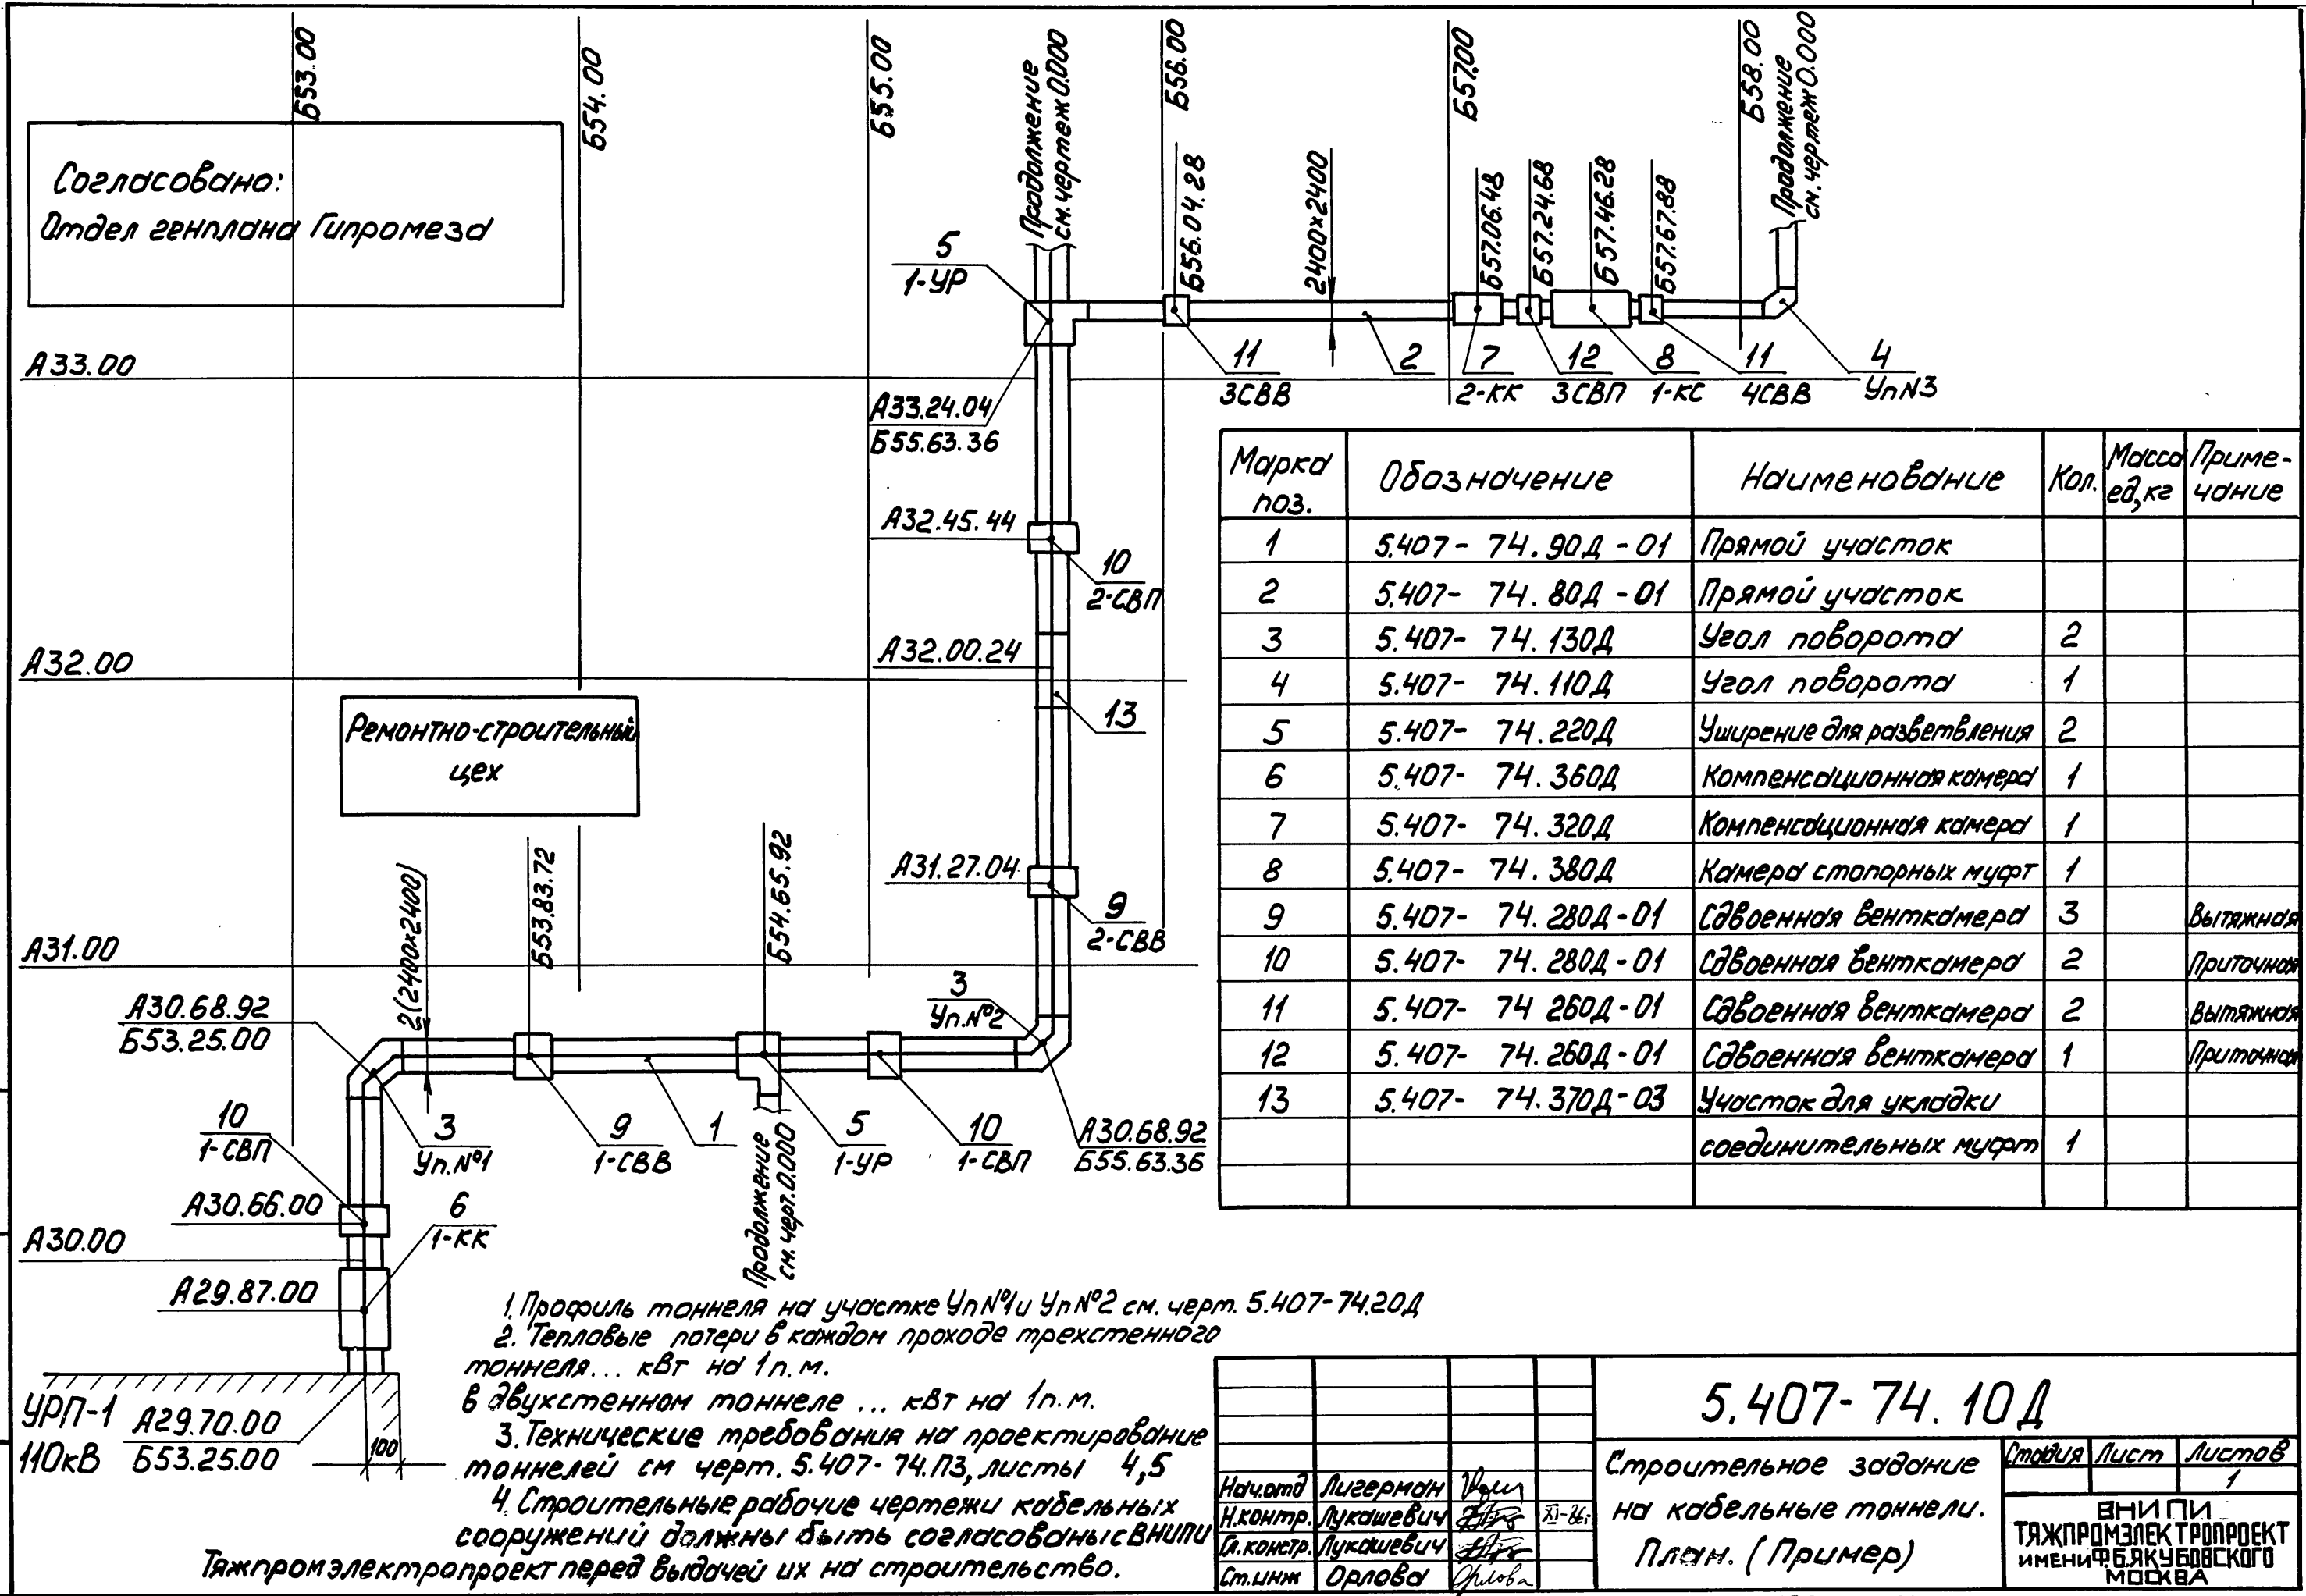 Б53.00
Б54.00
Б55.00
Продолжение
см.чертеж 0.000
Б56.00
Б57.00
Б58.00
Продолжение
см.чертеж 0.000
Согласовано:
Отдел генплана Гипромеза
5
1-УР
Б56.04.28
2400×2400
Б57.06.48
Б57.24.68
Б57.46.28
Б57.67.88
А33.00
11
3СВВ
2
7
2-КК
12
3СВП
8
1-КС
11
4СВВ
4
Уп N3
А33.24.04
Б55.63.36
А32.45.44
10
2-СВП
А32.00
А32.00.24
13
Ремонтно-строительный
цех
2(2400×2400)
Б53.83.72
Б54.65.92
А31.27.04
9
2-СВВ
А31.00
А30.68.92
Б53.25.00
3
Уп.№2
10
1-СВП
3
Уп.№1
9
1-СВВ
1
Продолжение
см.черт.0.000
5
1-УР
10
1-СВП
А30.68.92
Б55.63.36
А30.66.00
6
1-КК
А30.00
А29.87.00
УРП-1
110кВ
А29.70.00
Б53.25.00
100
Марка поз. Обозначение Наименование Кол. Масса ед,кг Приме-чание
1 5.407- 74.90Д-01 Прямой участок
2 5.407- 74.80Д-01 Прямой участок
3 5.407- 74.130Д Угол поворота 2
4 5.407- 74.110Д Угол поворота 1
5 5.407- 74.220Д Уширение для разветвления 2
6 5.407- 74.360Д Компенсационная камера 1
7 5.407- 74.320Д Компенсационная камера 1
8 5.407- 74.380Д Камера стопорных муфт 1
9 5.407- 74.280Д-01 Сдвоенная венткамера 3 Вытяжная
10 5.407- 74.280Д-01 Сдвоенная венткамера 2 Приточная
11 5.407- 74 260Д-01 Сдвоенная венткамера 2 Вытяжная
12 5.407- 74.260Д-01 Сдвоенная венткамера 1 Приточная
13 5.407- 74.370Д-03 Участок для укладки
соединительных муфт 1
1. Профиль тоннеля на участке Уп №1 и Уп №2 см. черт. 5.407-74.20Д
2. Тепловые потери в каждом проходе трехстенного
тоннеля... кВт на 1п.м.
в двухстенном тоннеле ... кВт на 1п.м.
3. Технические требования на проектирование
тоннелей см черт. 5.407-74.ПЗ, листы 4,5
4. Строительные рабочие чертежи кабельных
сооружений должны быть согласованы с ВНИПИ
Тяжпромэлектропроект перед выдачей их на строительство.
5.407-74.10Д
Строительное задание
на кабельные тоннели.
План. (Пример)
Стадия Лист Листов
1
Нач.отд Лигерман
Н.контр. Лукашевич XI-86г
Гл.констр. Лукашевич
Ст.инж Орлова Орлова
ВНИПИ
ТЯЖПРОМЭЛЕКТРОПРОЕКТ
ИМЕНИ Ф.Б.ЯКУБОВСКОГО
МОСКВА